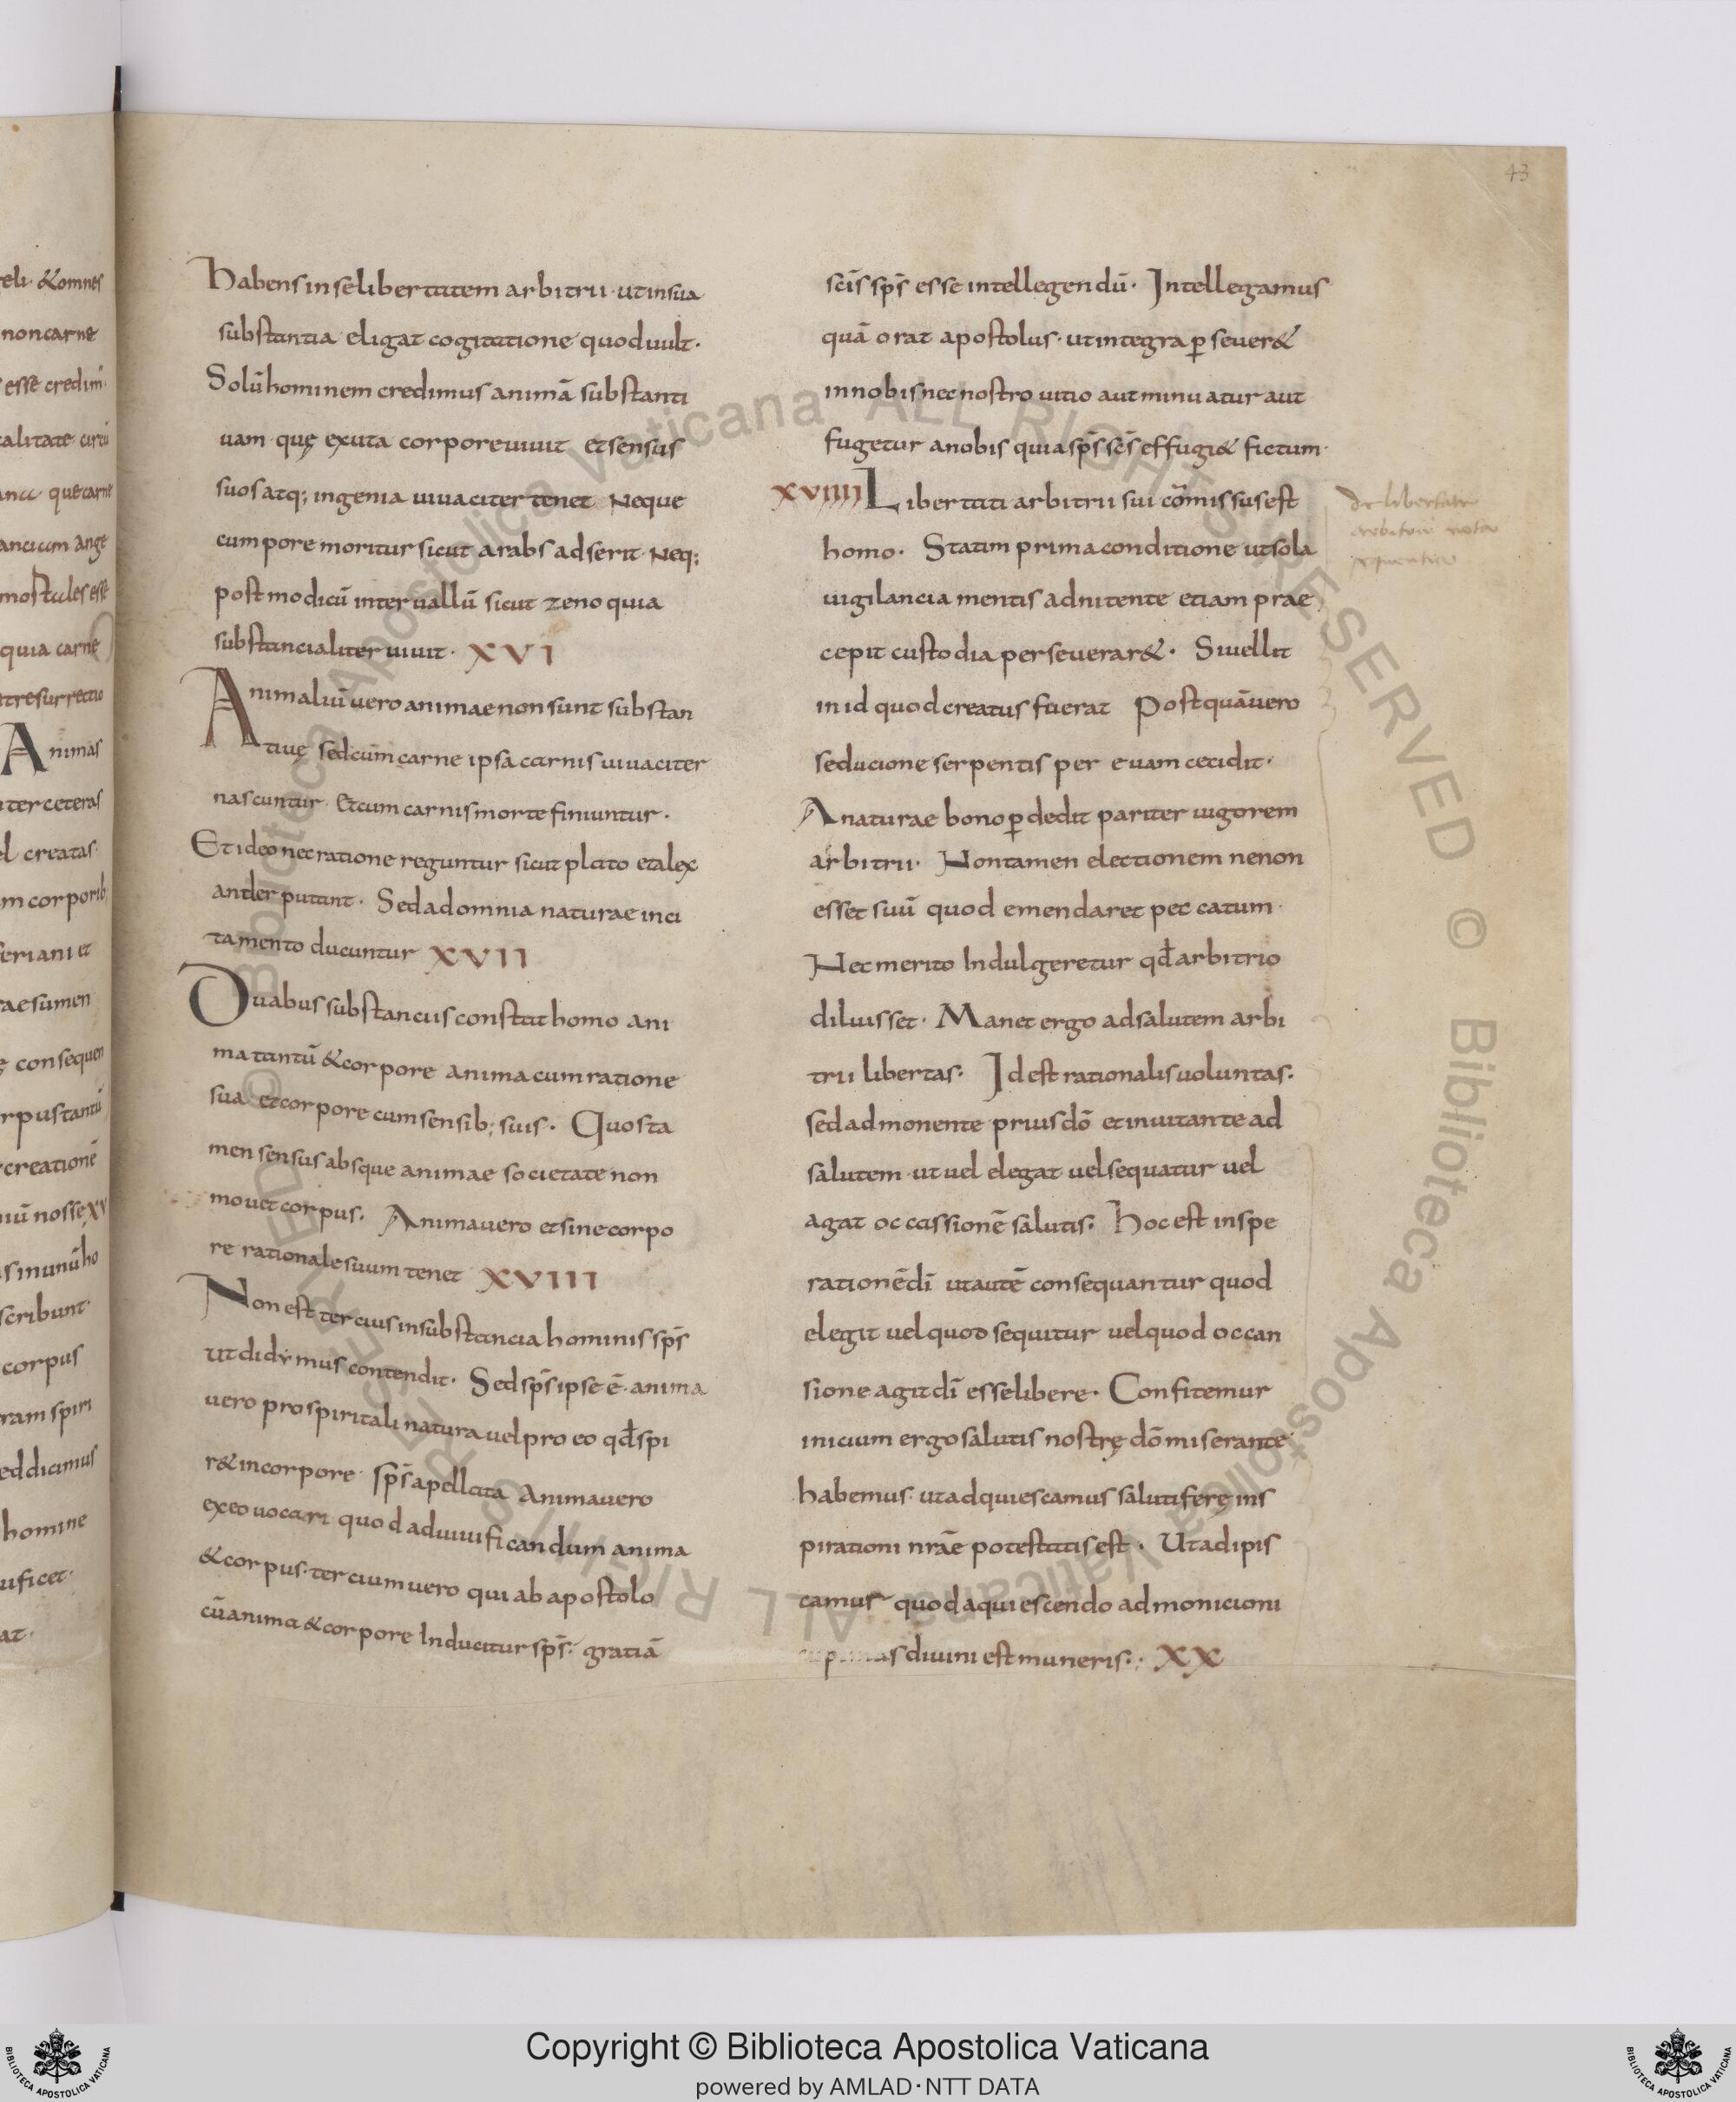 43
eli· & omnes
non carne
esse credim̄·
calitate cirtū
ancc que carne
ancium ange
mostales esse
quia carne
et resurrectio
Animas
nter ceteras
el creatas·
m corporib
feriani et
raesumen
ę consequen
rpus tantū
creationē
nū nosse XV
s in unū ho
scribunt·
corpus
ram spiri
ed dicimus
homine
uificet·
at·
Habens in se libertatem arbitrii· ut in sua
substantia eligat cogitatione quod uult·
Solū hominem credimus animā substanti
uam· quę exuta corpore uiuit et sensus
suos atq; ingenia uiuaciter tenet Neque
cum pore moritur sicut arabs adserit· Neq;
post modicū interuallū sicut zeno quia
substancialiter uiuit· XVI
Animaliū uero animae non sunt substan
tiuę sed cum carne ipsa carnis uiuaciter
nascuntur· Et cum carnis morte finiuntur·
Et ideo nec ratione reguntur sicut plato et alex
ander putant· Sed ad omnia naturae inci
tamento ducuntur XVII
Duabus substanciis constat homo ani
ma tantū & corpore anima cum ratione
sua et corpore cum sensib; suis· Quos ta
men sensus absque animae societate non
mouet corpus· Anima uero et sine corpo
re rationale suum tenet XVIII
Non est tercius in substancia hominis sp̄s
ut didymus contendit· Sed sp̄s ipse ē· anima
uero pro spiritali natura uel pro eo qđ spi
r& in corpore· sp̄s apellata Anima uero
ex eo uocari quod ad uiuificandum anima
& corpus· tercium uero qui ab apostolo
cū anima & corpore Inducitur sp̄s· gratiā
sc̄is sp̄s esse intellegendū· Intellegamus
quā orat apostolus· ut integra ꝑseuer&
in nobis nec nostro uitio aut minuatur aut
fugetur a nobis quia sp̄s sc̄s effugi& fictum·
XVIIII Libertati arbitrii sui cōmissus est
homo· Statim prima conditione ut sola
uigilancia mentis adnitente etiam prae
cepit custodia perseuerar&· Si uellit
in id quod creatus fuerat Postquā uero
seducione serpentis per euam cecidit·
A naturae bono ꝑdedit pariter uigorem
arbitrii· Non tamen electionem ne non
esset suū quod emendaret peccatum·
Nec merito Indulgeretur qđ arbitrio
diluisset· Manet ergo ad salutem arbi
trii libertas· Id est rationalis uoluntas·
sed admonente prius dō et inuitante ad
salutem· ut uel elegat uel sequatur uel
agat occassionē salutis· Hoc est inspe
rationē dī ut autē consequantur quod
elegit uel quod sequitur uel quod occan
sione agit dī esse libere· Confitemur
inicium ergo salutis nostrę dō miserante
habemus· ut adquiescamus salutiferę ins
pirationi nr̄ae potestatis est· Ut adipis
camur quod aquiescendo admonicioni
diuini est muneris· XX
de libertate
arbitrii nota
Copyright © Biblioteca Apostolica Vaticana
powered by AMLAD·NTT DATA
© Biblioteca Apostolica Vaticana ALL RIGHTS RESERVED © Biblioteca Apostolica Vaticana ALL RIGHTS RESERVED
BIBLIOTECA APOSTOLICA VATICANA
BIBLIOTECA APOSTOLICA VATICANA